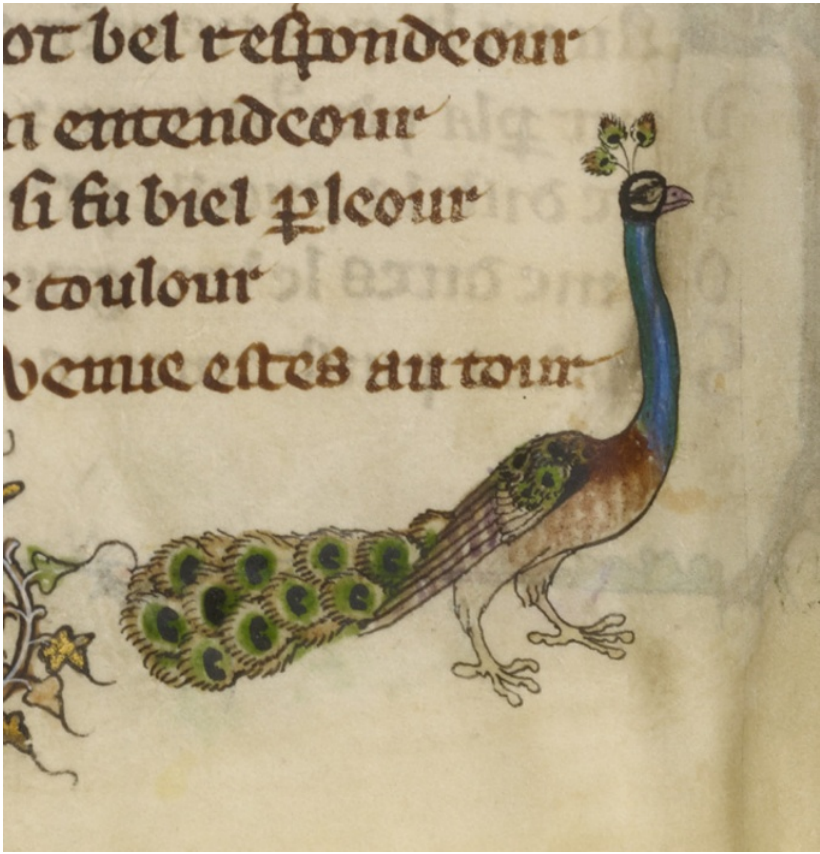 ot bel respondeour
n entendeour
si fu biel pleour
e coulour
venue estes au tour